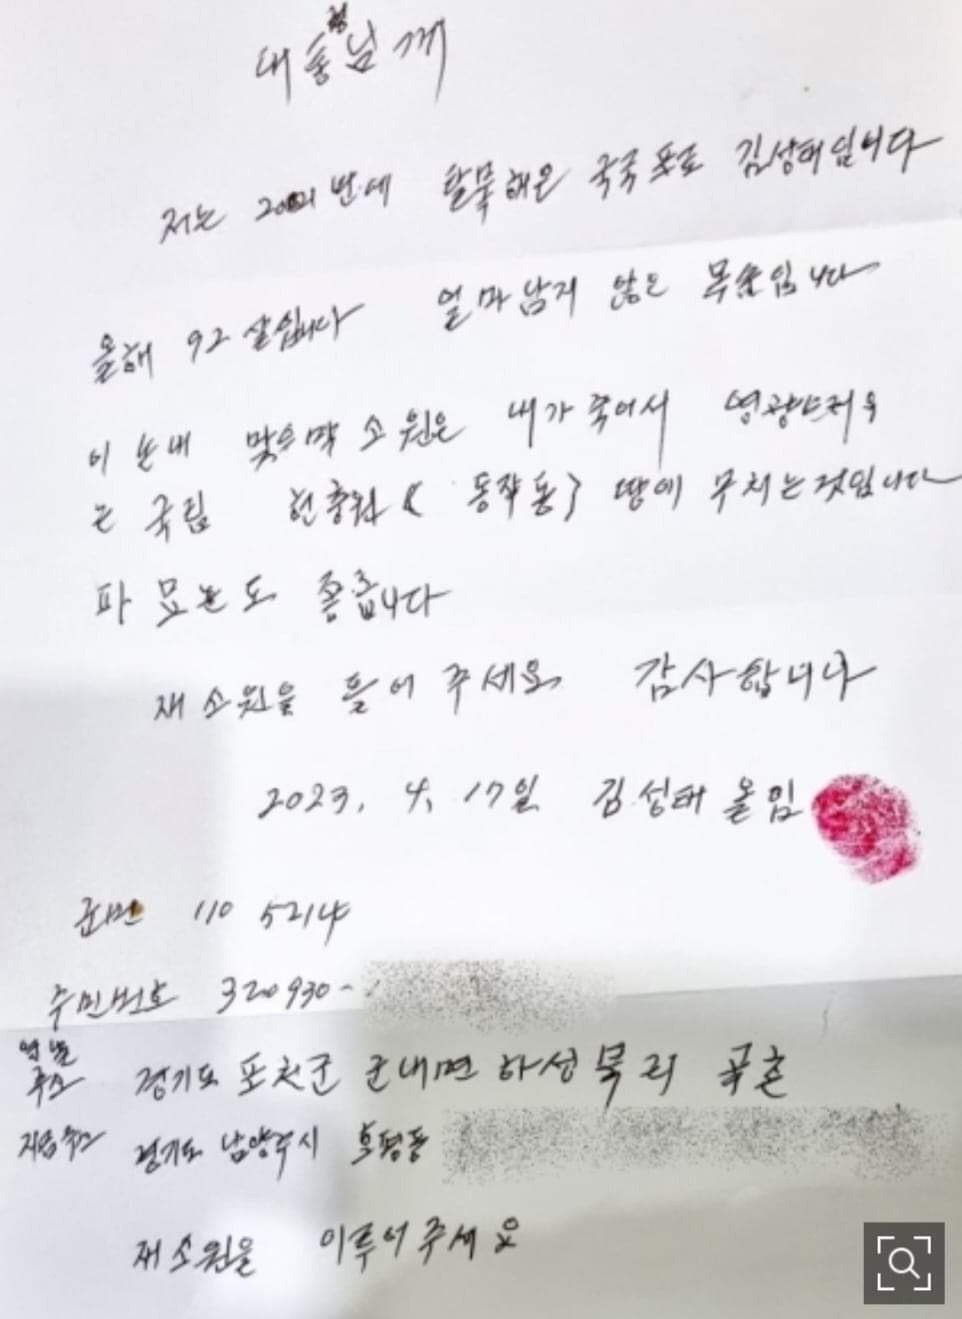 대통령님께
저는 2001번에 탈북해온 국국포로 김성태입니다
올해 92살입니다 얼마남지 않은 목숨입니다
이 눈내 맞으막 소원은 내가 죽어서 영광스러우
는 국립 현충원 (동작동) 땅에 무치는것입니다
파묘는도 좋습니다
재 소원을 들어 주세요 감사합니다
2023. 4. 17일 김성태 올임
군번 110 5214
주민번호 320930-
옛날
주소 경기도 포천군 군내면 하성북리
지금주소 경기도 남양주시 호평동
재 소원을 이루어주세요